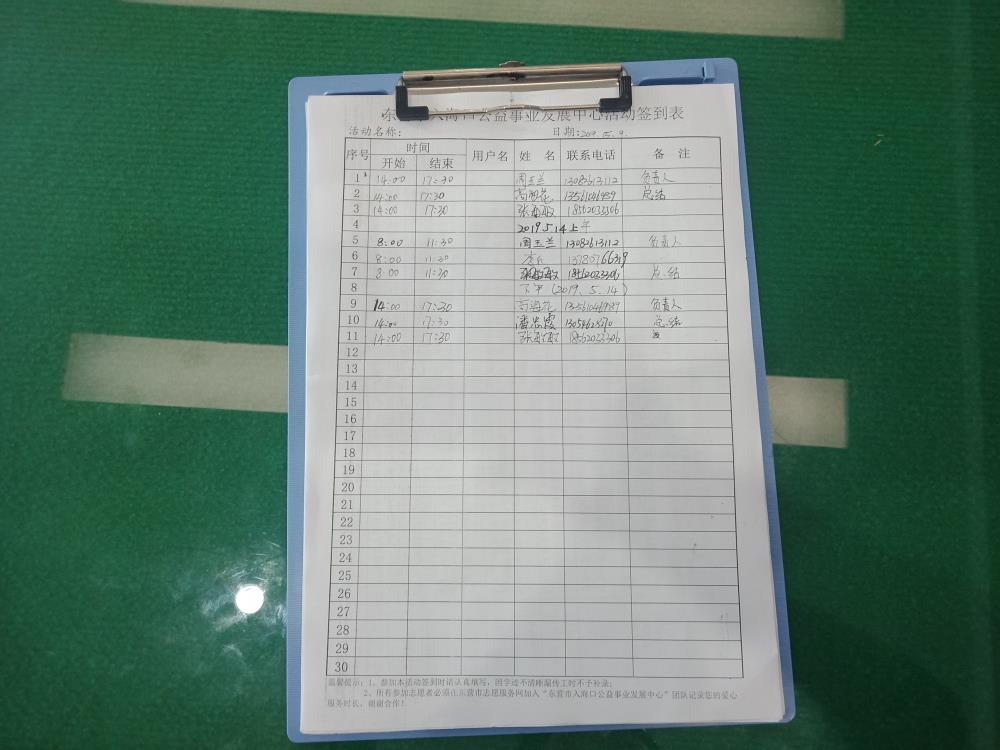 东营市入海口公益事业发展中心活动签到表
活动名称： 日期：2019.5.9.
序号 时间 用户名 姓名 联系电话 备注
开始 结束
1 14:00 17:30 周玉兰 13082613112 负责人
2 14:00 17:30 13561046989 总结
3 14:00 17:30 18562033306
4 2019 5 14 上午
5 8:00 11:30 周玉兰 13082613112 负责人
6 8:00 11:30
7 8:00 11:30 18562033306 总结
8 下午 (2019. 5. 14)
9 14:00 17:30 13561046989 负责人
10 14:00 17:30 总结
11 14:00 17:30 18562033306
12
13
14
15
16
17
18
19
20
21
22
23
24
25
26
27
28
29
30
温馨提示：1、参加本活动签到时请认真填写，因字迹不清晰漏传工时不予补录；
2、所有参加志愿者必须在东营市志愿服务网加入“东营市入海口公益事业发展中心”团队记录您的爱心
服务时长，谢谢合作！